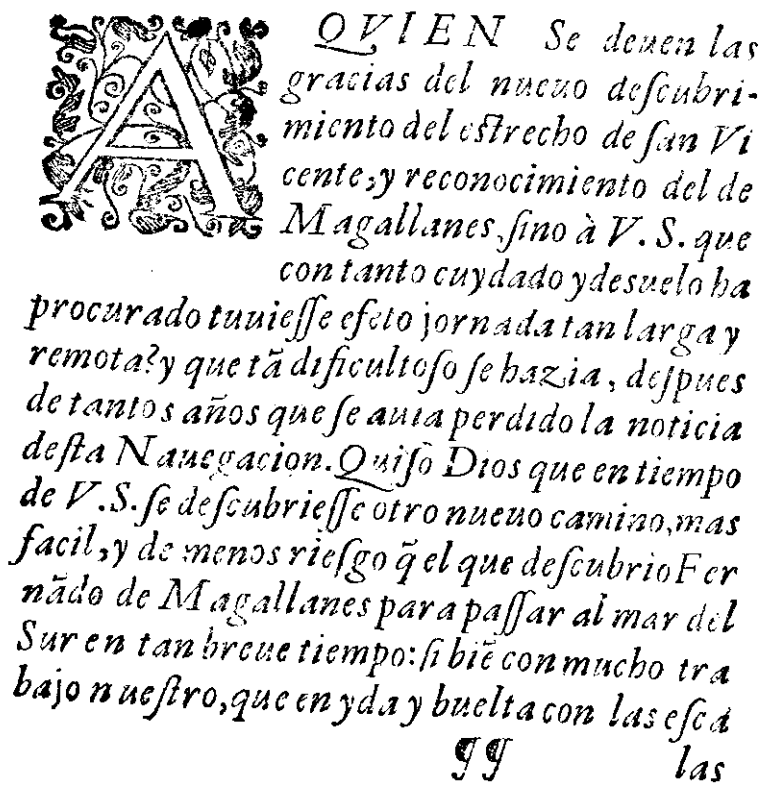 A QVIEN Se deuen las
gracias del nueuo deſcubri-
miento del eſtrecho de ſan Vi
cente, y reconocimiento del de
Magallanes, ſino à V. S. que
con tanto cuydado y deſuelo ha
procurado tuuieſſe efeto jornada tan larga y
remota? y que tã dificultoſo ſe hazia, deſpues
de tantos años que ſe auia perdido la noticia
deſta Nauegacion. Quiſo Dios que en tiempo
de V. S. ſe deſcubrieſſe otro nueuo camino, mas
facil, y de menos rieſgo q̃ el que deſcubrio Fer
nãdo de Magallanes para paſſar al mar del
Sur en tan breue tiempo: ſi biẽ con mucho tra
bajo nueſtro, que en yda y buelta con las eſca
¶¶ las